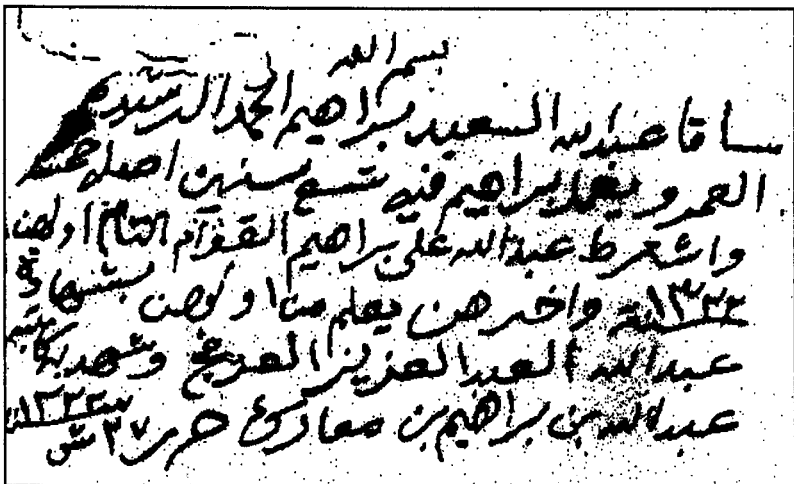 بسم الله
ساقا عبدالله السعيد براهيم الحمد الرشيد
العمر ويعمل براهيم فيه تسع سنين اصله
واشعرط عبدالله على براهيم القوام التام اولهن
سنة ١٣٣٣ واخرهن يعلم من اولهن بشهادة
عبدالله العبدالعزيز وشهد به كاتبه
عبدالله بن براهيم بن معارك حرر ٢٧ ش سنة ١٣٣٣